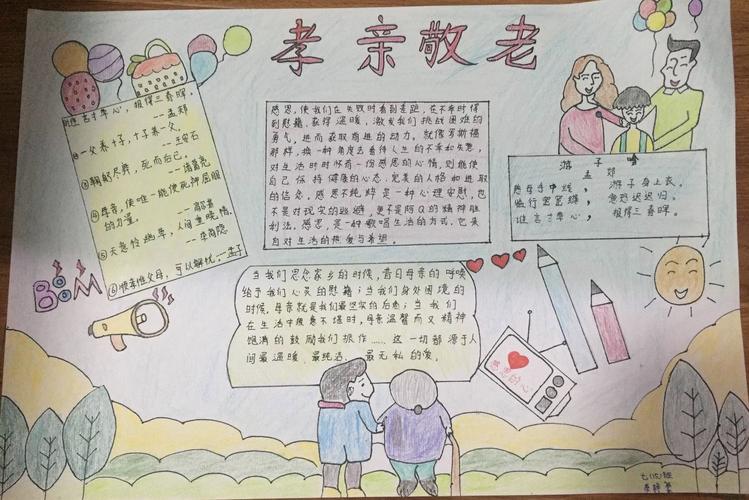 孝亲敬老
谁言寸草心，报得三春晖。
——孟郊
②一父养十子，十子养一父。
③鞠躬尽瘁，死而后已。
——诸葛亮
④母亲，使唯一能使死神屈服
的力量。
⑤天意怜幽草，人间重晚情。
——李商隐
⑥惟孝惟父母，可以解忧，——孟子
感恩，使我们在失败时看到差距，在不幸时得
到慰藉、获得温暖，激发我们挑战困难的
勇气，进而获取前进的动力。就像罗斯福
那样，换一种角度去看待人生的不幸和失意，
对生活时时怀有一份感恩的心情，则能使
自己保持健康的心态、完美的人格和进取
的信念。感恩不纯粹是一种心理安慰，也
不是对现实的逃避，更不是阿Q的精神胜
利法。感恩，是一种歌唱生活的方式，它来
自对生活的热爱与希望。
游子吟
孟郊
慈母手中线， 游子身上衣。
临行密密缝， 意恐迟迟归。
谁言寸草心， 报得三春晖。
当我们思念家乡的时候，昔日母亲的呼唤
给予我们心灵的慰藉；当我们身处困境的
时候，母亲就是我们最坚实的后盾；当我们
在生活中疲惫不堪时，母亲温馨而又精神
饱满的鼓励我们振作……这一切都源于人
间最温暖、最纯洁、最无私的爱。
BOOM
感恩的心